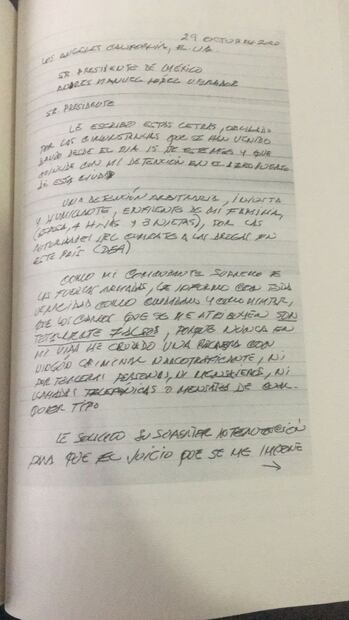 29 OCTUBRE 2020
LOS ANGELES CALIFORNIA, E.U.A.
SR. PRESIDENTE DE MÉXICO
ANDRES MANUEL LÓPEZ OBRADOR
SR. PRESIDENTE
LE ESCRIBO ESTAS LETRAS, OBLIGADO
POR LAS CIRCUNSTANCIAS QUE SE HAN VENIDO
DANDO DESDE EL DIA 15 DE ESTE MES Y QUE
COINCIDE CON MI DETENCIÓN EN EL AEROPUERTO
DE ESTA CIUDAD
UNA DETENCIÓN ARBITRARIA, INJUSTA
Y HUMILLANTE, ENFRENTE DE MI FAMILIA,
(ESPOSA, 4 HIJAS Y 3 NIETAS), POR LAS
AUTORIDADES DEL COMBATE A LAS DROGAS EN
ESTE PAÍS (DEA)
COMO MI COMANDANTE SUPREMO DE
LAS FUERZAS ARMADAS, LE INFORMO CON TODA
VERACIDAD COMO CIUDADANO Y COMO MILITAR,
QUE LOS CARGOS QUE SE ME ATRIBUYEN SON
TOTALMENTE FALSOS, PORQUE NUNCA EN
MI VIDA HE CRUZADO UNA PALABRA CON
NINGÚN CRIMINAL NARCOTRAFICANTE, NI
POR TERCERA PERSONA, NI MENSAJEROS, NI
LLAMADAS TELEFÓNICAS O MENSAJES DE CUAL-
QUIER TIPO
LE SOLICITO SU SUPERIOR INTERVENCIÓN
PARA QUE EL JUICIO QUE SE ME IMPONE
→